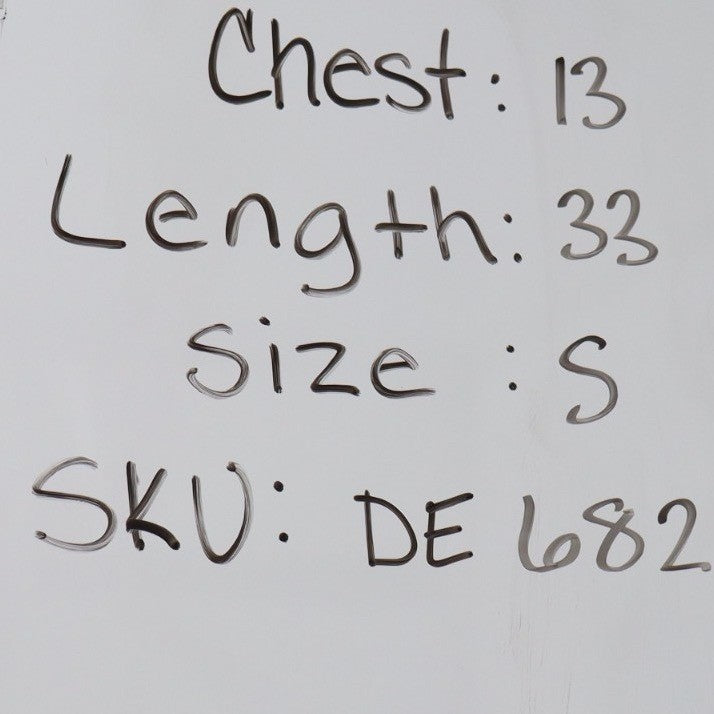 Chest: 13
Length: 33
Size : S
SKU: DE 682